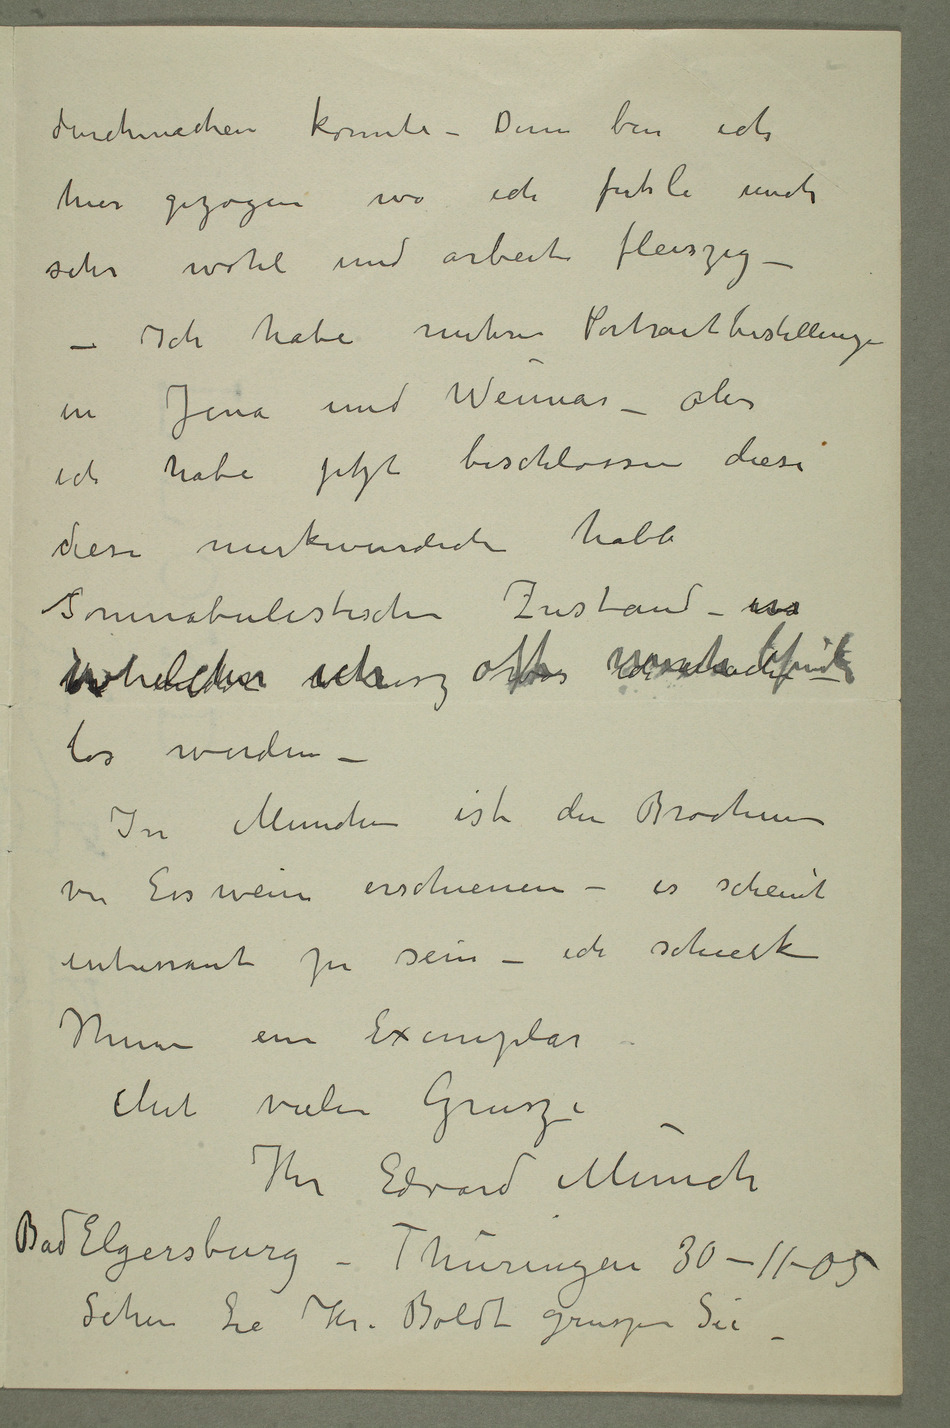 durchmachen konnte – Denn bin ich
hier gezogen wo ich fuhle mich
sehr wohl und arbeite fleiszig –
– Ich habe mehre Portraitbestellunge
in Jena und Weimar – aber
ich habe jetzt beschlossen diese
diese merkwurdiche halb
Somnabulistische Zustand –
ich
los werden –
In Munchen ist die Brochure
von Esswein erschienen – es scheint
interrant zu sein – ich schicke
Ihnen ein Exemplar
Mit vielen Grusze
Ihr Edvard Munch
Bad Elgersburg – Thuringen 30–11–05
Sehen Sie Hr. Boldt gruszen Sie –